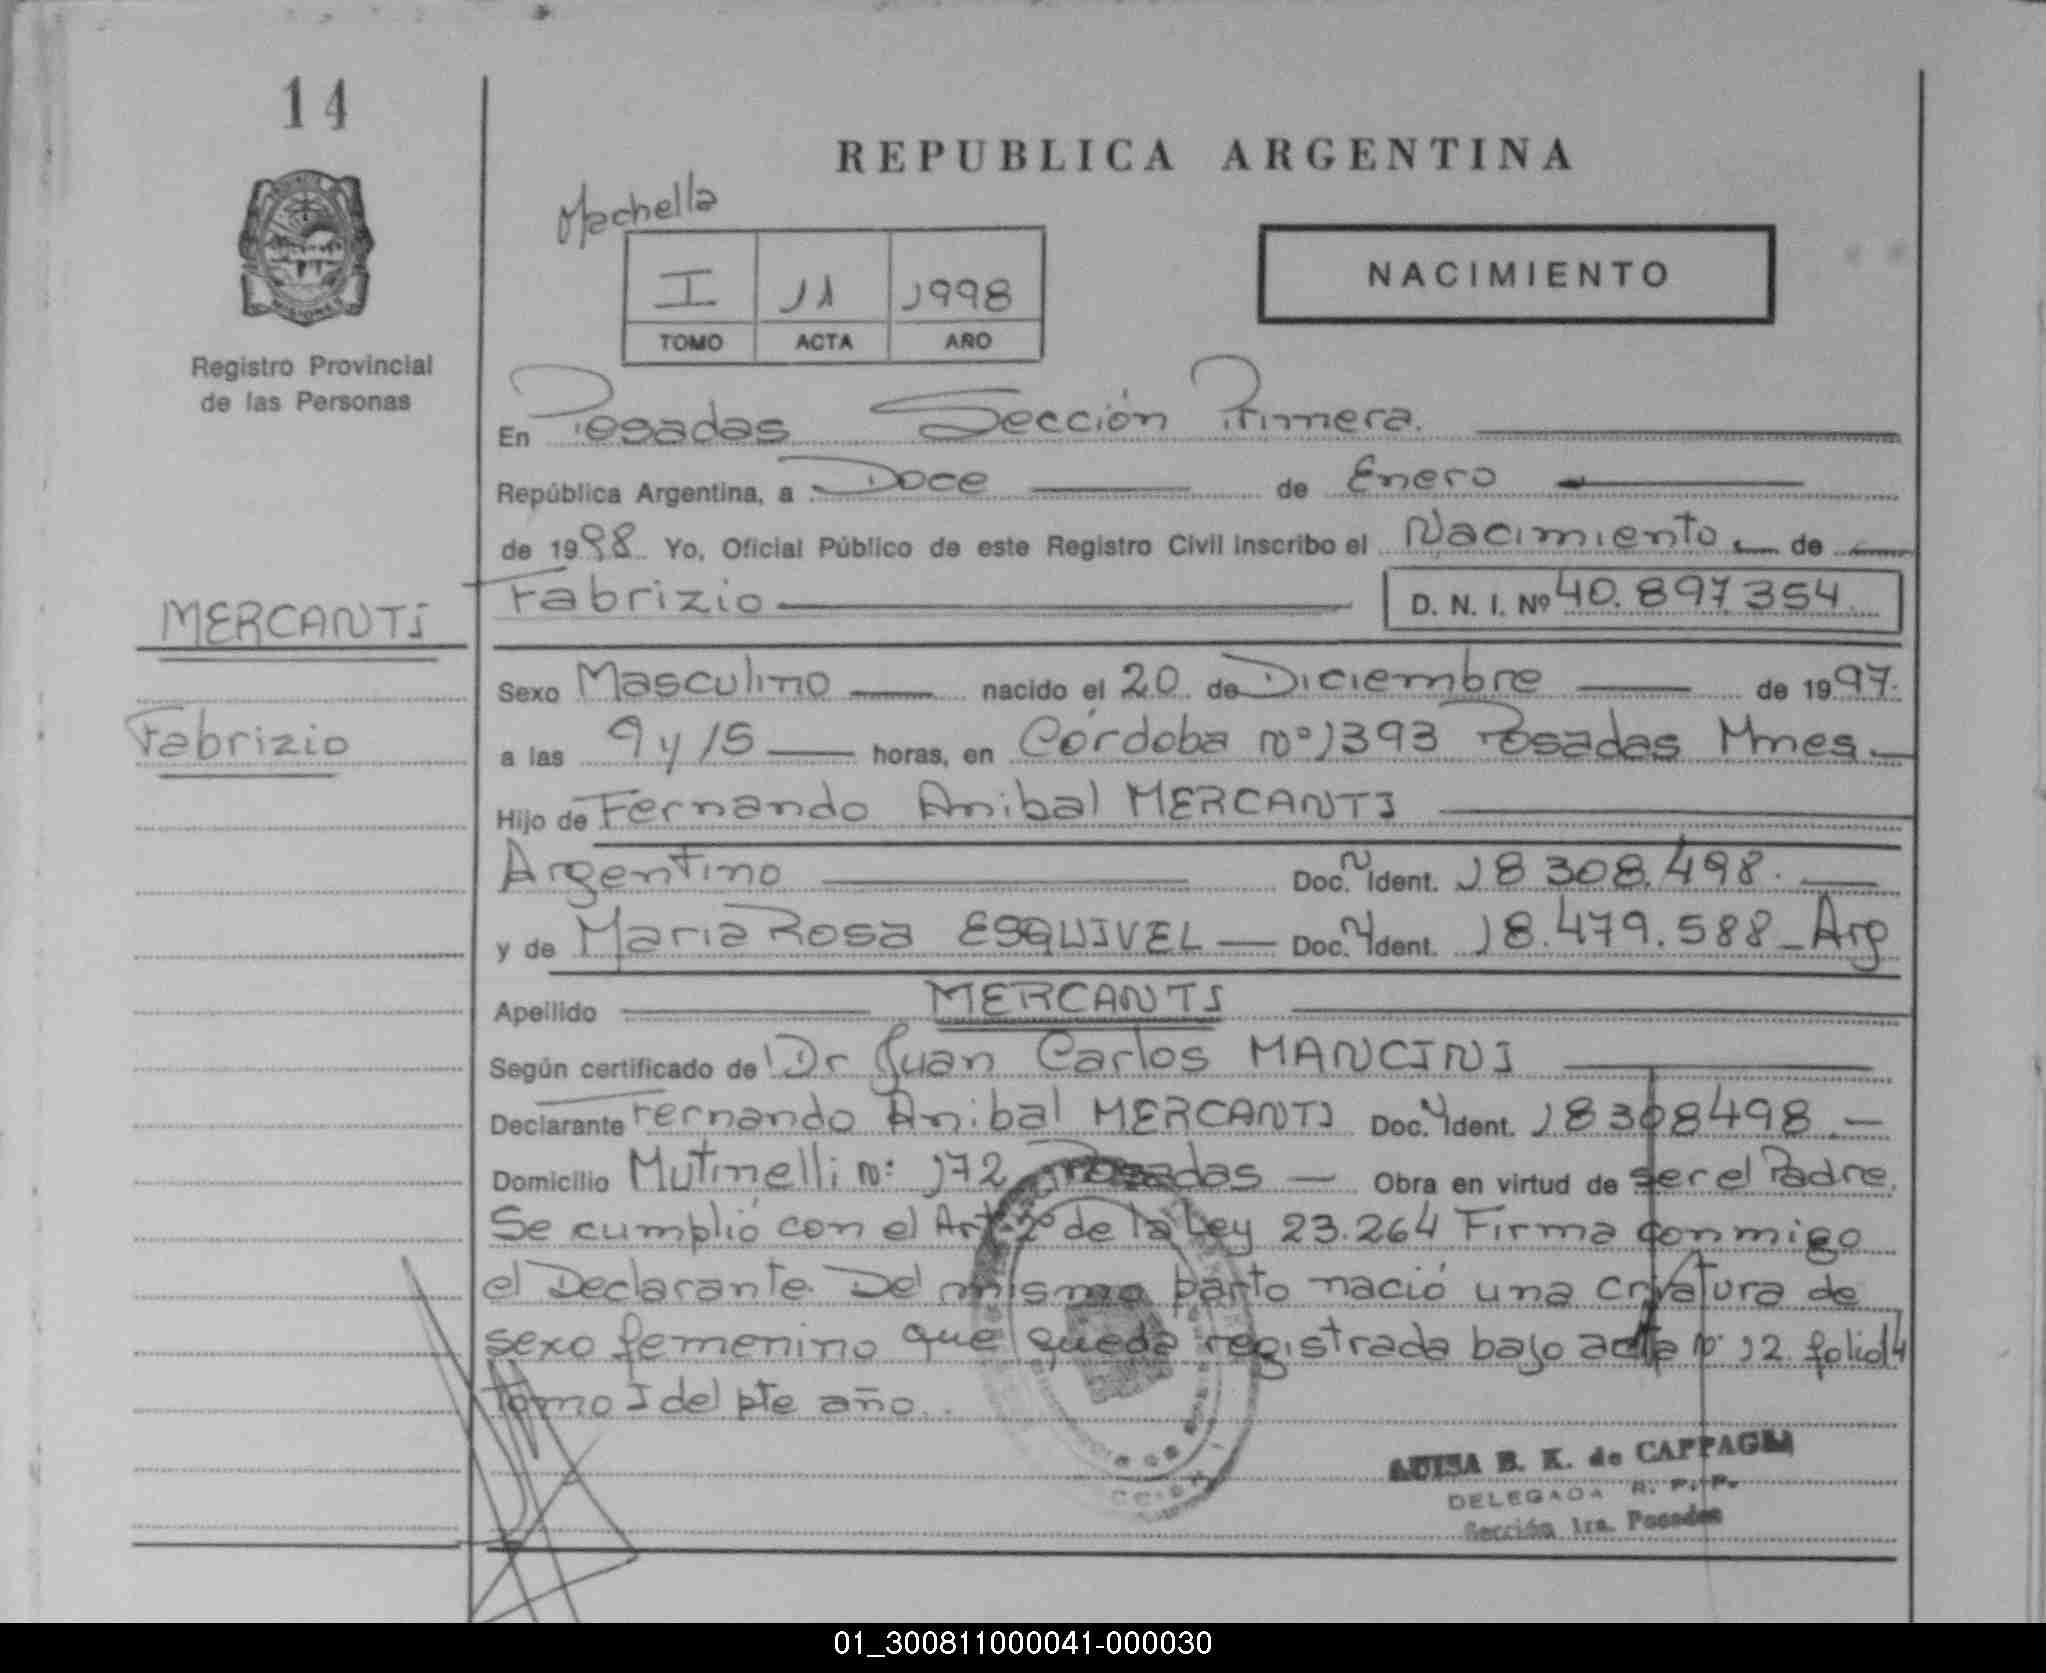 14
REPUBLICA ARGENTINA
Machella
I 11 1998
TOMO ACTA AÑO
NACIMIENTO
MISIONES
Registro Provincial
de las Personas
En Posadas Sección Primera.
República Argentina, a Doce de Enero
de 1998 Yo, Oficial Público de este Registro Civil inscribo el Nacimiento de
Fabrizio D. N. I. Nº 40.897.354
MERCANTI
Sexo Masculino nacido el 20 de Diciembre de 1997.
Fabrizio
a las 9 y 15 horas, en Córdoba nº 1393 Posadas Mnes.
Hijo de Fernando Anibal MERCANTI
Argentino Doc. N Ident. 18.308.498.
y de Maria Rosa ESQUIVEL Doc. N Ident. 18.479.588 Arg
Apellido MERCANTI
Según certificado de Dr Juan Carlos MANCINI
Declarante Fernando Anibal MERCANTI Doc. N Ident. 18308498
Domicilio Mutinelli nº 172 Posadas Obra en virtud de ser el Padre.
Se cumplió con el Art 2º de la Ley 23.264 Firma conmigo
el Declarante. Del mismo parto nació una criatura de
sexo femenino que queda registrada bajo acta nº 12 folio 14
tomo I del pte año.
LUISA B. K. de CAPPAGLI
DELEGADA R. P. P.
Sección 1ra. Posadas
01_300811000041-000030